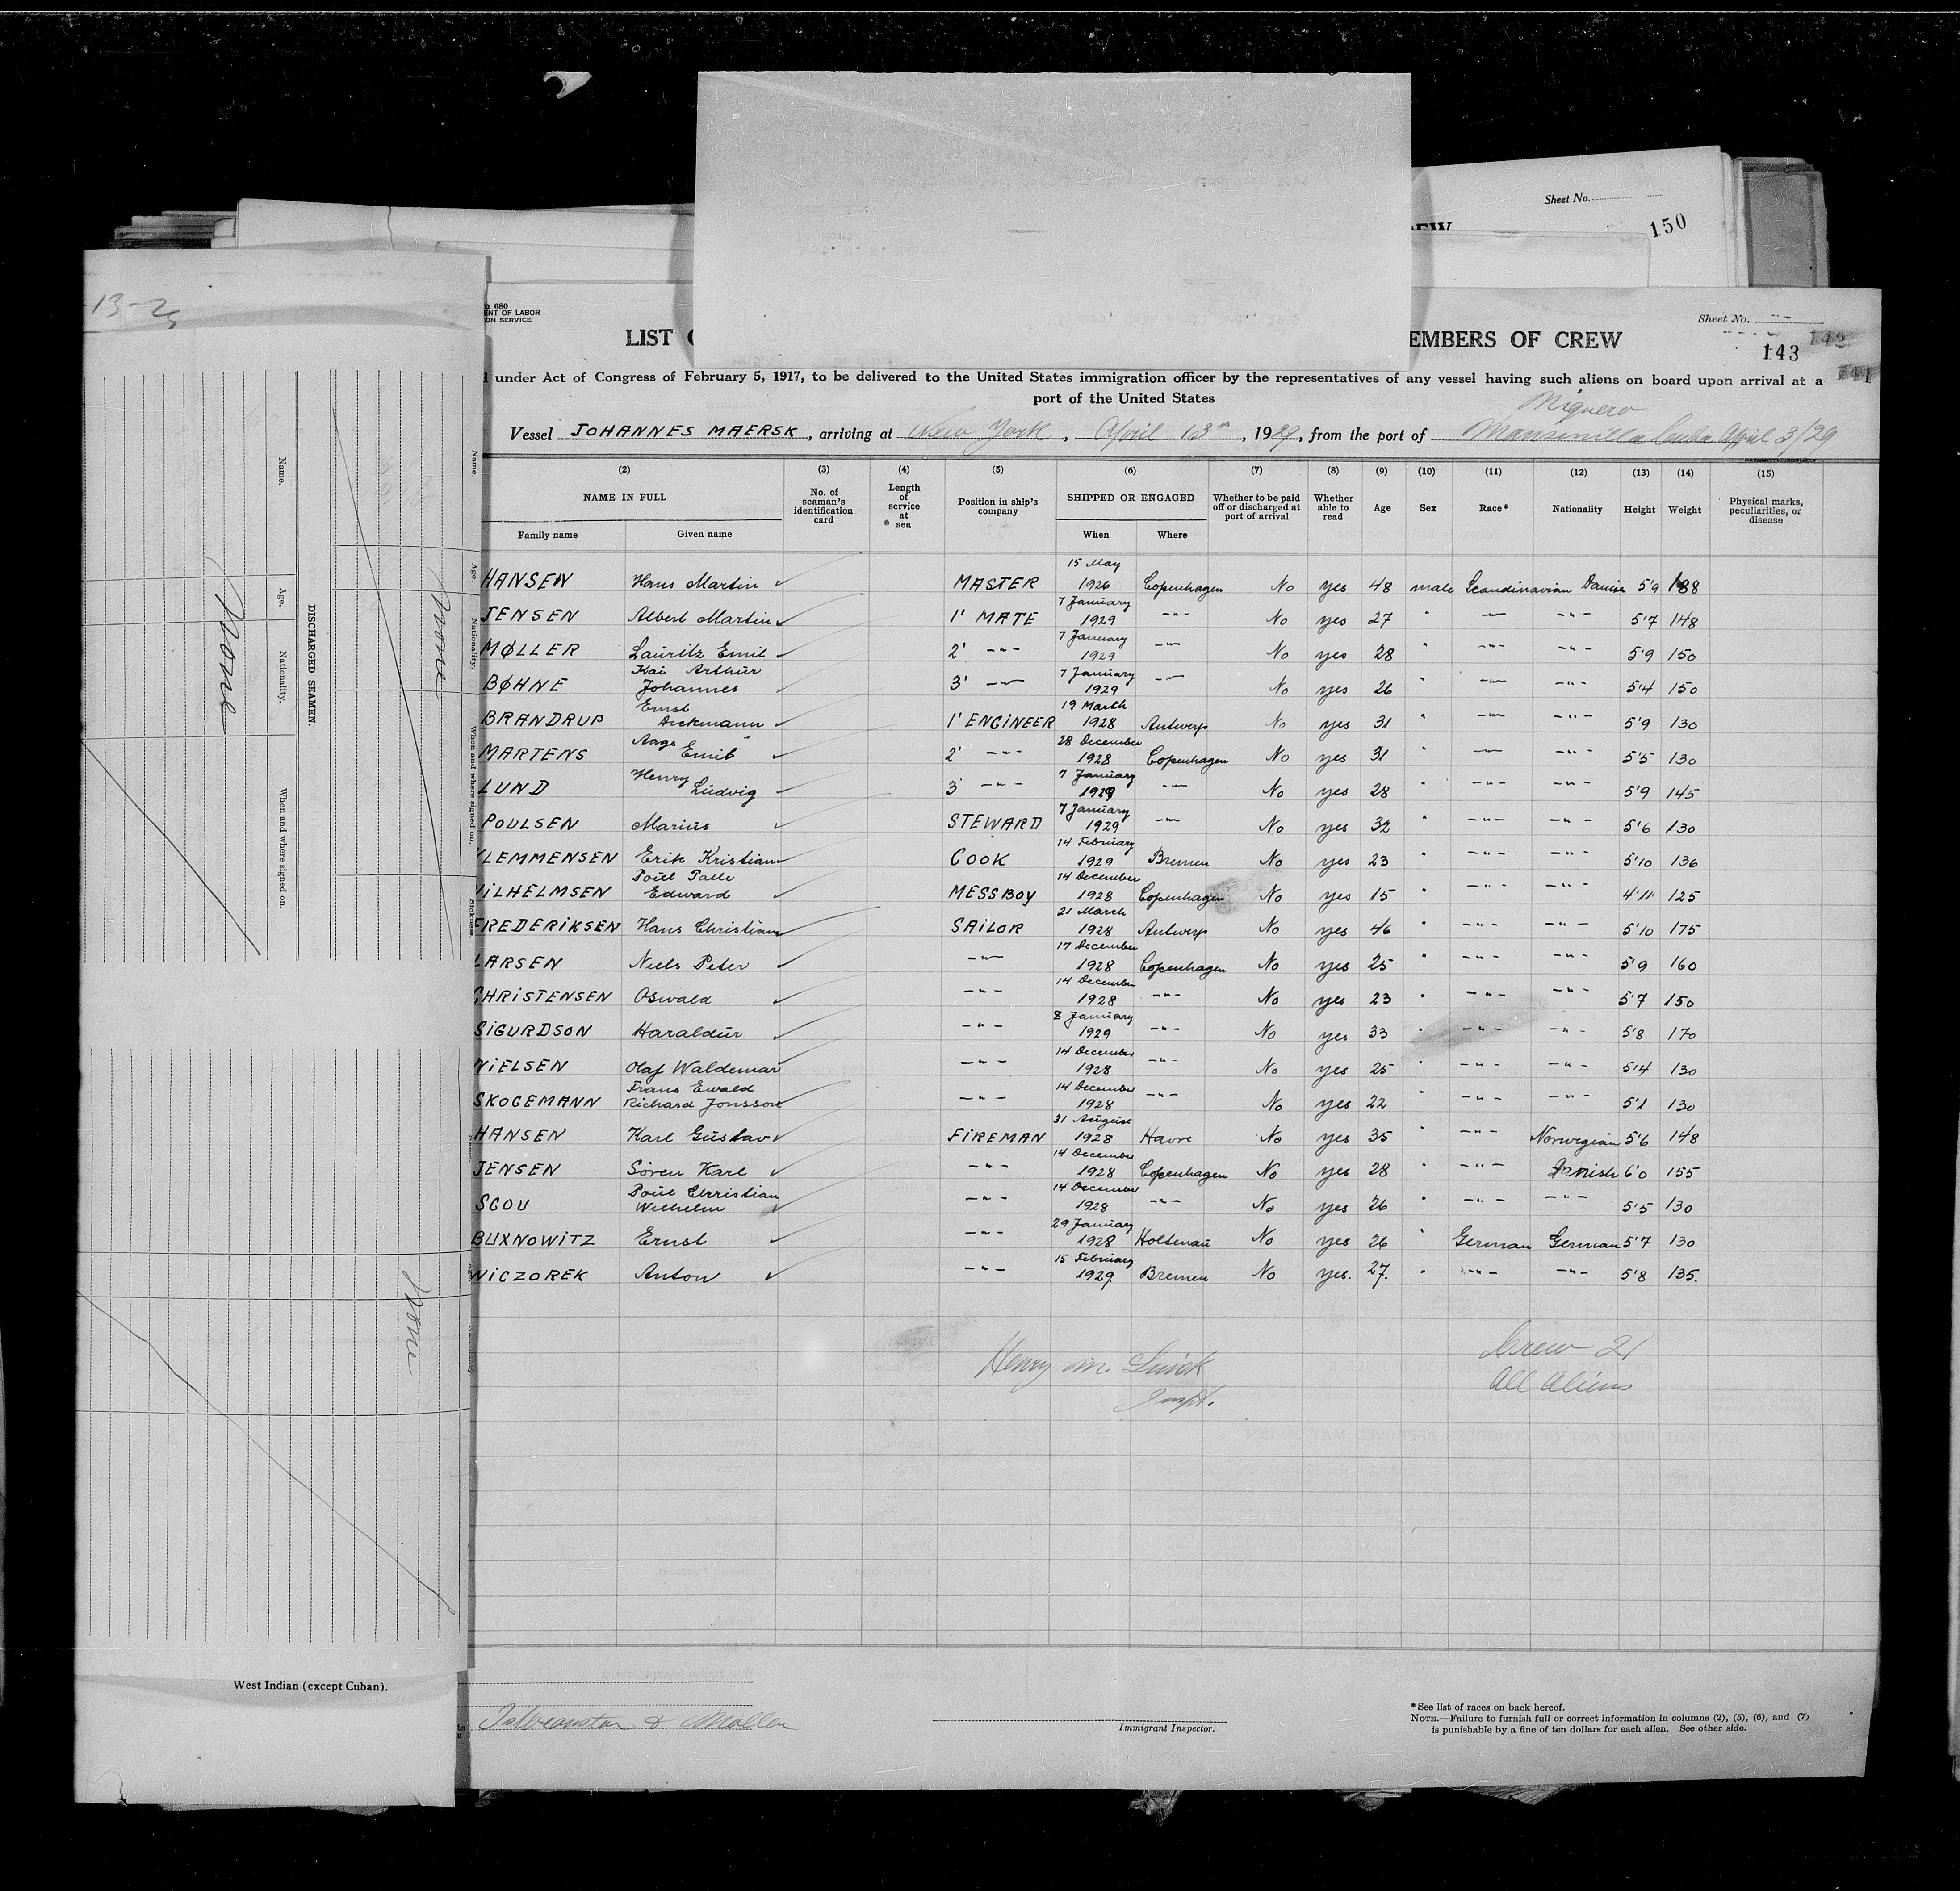 Sheet No.
EW
150
13-29
Name.
Age.
Nationality.
When and where signed on.
DISCHARGED SEAMEN.
None
Name.
Age.
Nationality.
When and where signed on.
Sickness.
None
None
West Indian (except Cuban).
680
ENT OF LABOR
ON SERVICE
LIST
EMBERS OF CREW
Sheet No.
143
under Act of Congress of February 5, 1917, to be delivered to the United States immigration officer by the representatives of any vessel having such aliens on board upon arrival at a
port of the United States
Miguero
Vessel JOHANNES MAERSK, arriving at New York, April 13th, 1929, from the port of Mansinilla Cuba April 3/29
(2) (3) (4) (5) (6) (7) (8) (9) (10) (11) (12) (13) (14) (15)
NAME IN FULL No. of seaman's identification card Length of service at sea Position in ship's company SHIPPED OR ENGAGED Whether to be paid off or discharged at port of arrival Whether able to read Age Sex Race* Nationality Height Weight Physical marks, peculiarities, or disease
Family name Given name When Where
HANSEN Hans Martin ✓ MASTER 15 May 1926 Copenhagen No yes 48 male Scandinavian Danish 5'9 188
JENSEN Albert Martin ✓ 1' MATE 7 January 1929 -"- No yes 27 " -"- -"- 5'7 148
MØLLER Lauritz Emil ✓ 2' -"- 7 January 1929 -"- No yes 28 " -"- -"- 5'9 150
BØHNE Kai Arthur Johannes ✓ 3' -"- 7 January 1929 -"- No yes 26 " -"- -"- 5'4 150
BRANDRUP Ernst Dickmann ✓ 1' ENGINEER 19 March 1928 Antwerp No yes 31 " -"- -"- 5'9 130
MARTENS Aage Emil ✓ 2' -"- 28 December 1928 Copenhagen No yes 31 " -"- -"- 5'5 130
LUND Henry Ludvig ✓ 3' -"- 7 January 1929 -"- No yes 28 " -"- -"- 5'9 145
POULSEN Marius ✓ STEWARD 7 January 1929 -"- No yes 32 " -"- -"- 5'6 130
KLEMMENSEN Erik Kristian ✓ COOK 14 February 1929 Bremen No yes 23 " -"- -"- 5'10 136
VILHELMSEN Poul Palle Edward ✓ MESSBOY 14 December 1928 Copenhagen No yes 15 " -"- -"- 4'11 125
FREDERIKSEN Hans Christian ✓ SAILOR 21 March 1928 Antwerp No yes 46 " -"- -"- 5'10 175
LARSEN Niels Peter ✓ -"- 17 December 1928 Copenhagen No yes 25 " -"- -"- 5'9 160
CHRISTENSEN Oswald ✓ -"- 14 December 1928 -"- No yes 23 " -"- -"- 5'7 150
SIGURDSON Haraldur ✓ -"- 8 January 1929 -"- No yes 33 " -"- -"- 5'8 170
NIELSEN Olaf Waldemar ✓ -"- 14 December 1928 -"- No yes 25 " -"- -"- 5'4 130
SKOGEMANN Frans Ewald Richard Jonsson ✓ -"- 14 December 1928 -"- No yes 22 " -"- -"- 5'1 130
HANSEN Karl Gustav ✓ FIREMAN 31 August 1928 Havre No yes 35 " -"- Norwegian 5'6 148
JENSEN Sören Karl ✓ -"- 14 December 1928 Copenhagen No yes 28 " -"- Danish 6'0 155
SGOU Poul Christian Wilhelm ✓ -"- 14 December 1928 -"- No yes 26 " -"- -"- 5'5 130
BUXNOWITZ Ernst ✓ -"- 29 January 1928 Holtenau No yes 26 " German German 5'7 130
WICZOREK Anton ✓ -"- 15 February 1929 Bremen No yes. 27. " -"- -"- 5'8 135.
Henry M.
Inspt.
Crew 21
All Aliens
& Moller
Immigrant Inspector.
* See list of races on back hereof.
NOTE.—Failure to furnish full or correct information in columns (2), (5), (6), and (7)
is punishable by a fine of ten dollars for each alien. See other side.